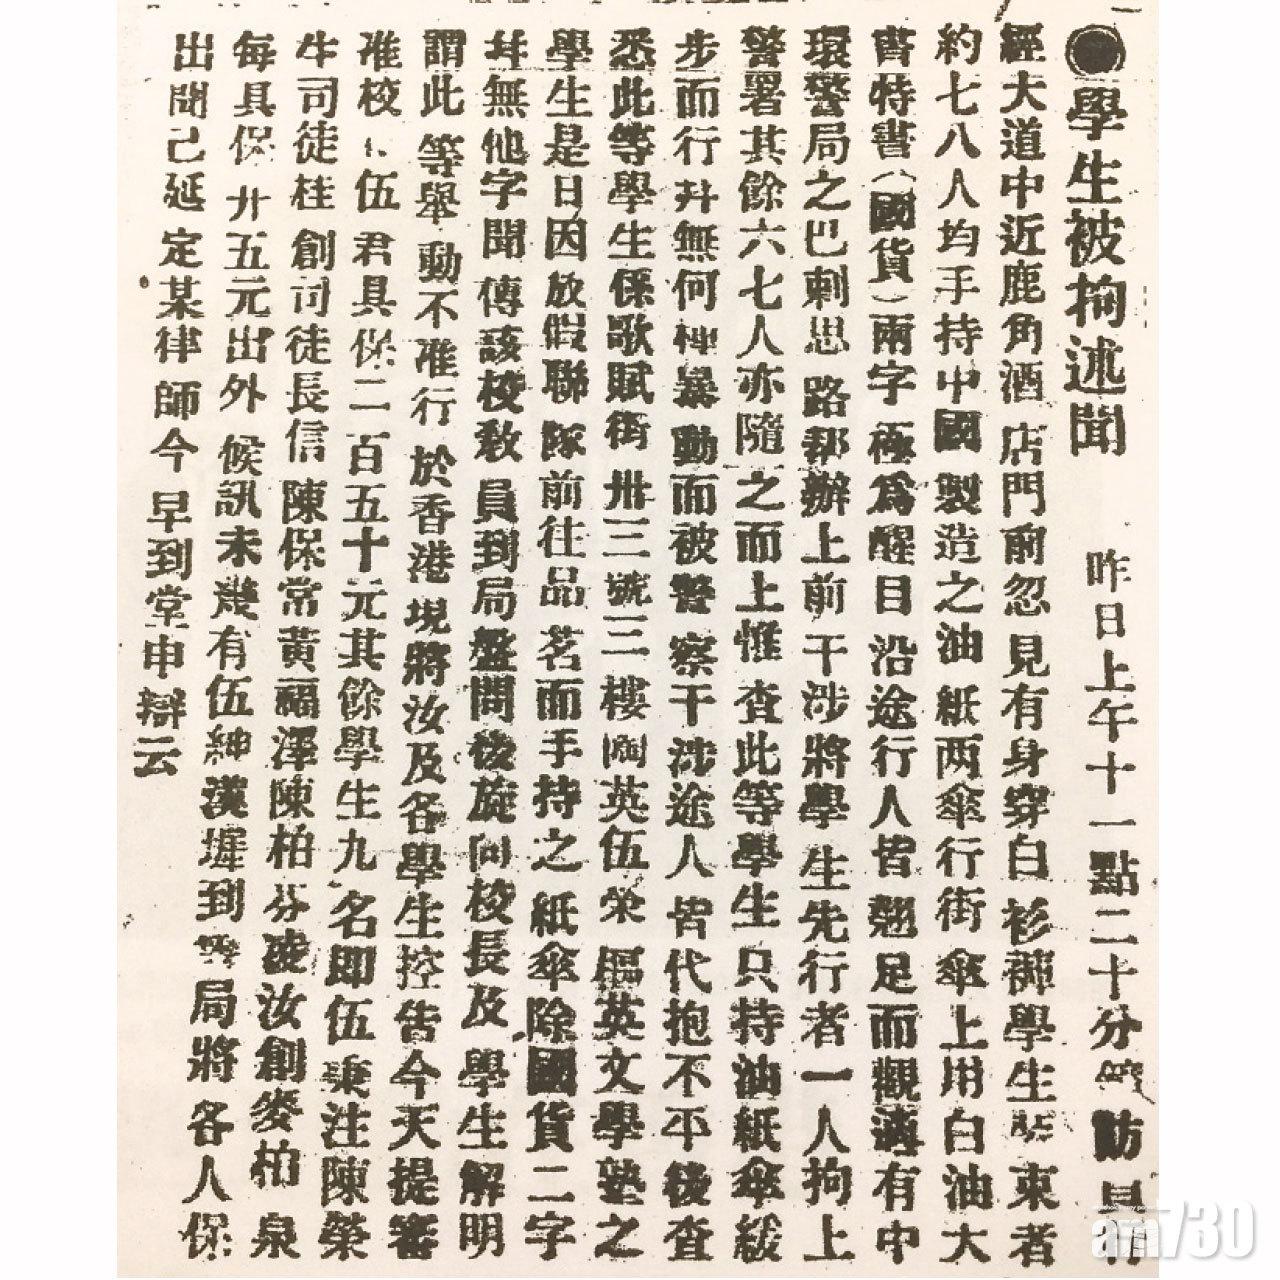 ●學生被拘述聞 昨日上午十一點二十分 訪員行
經大道中近鹿角酒店門前忽見有身穿白衫褲學生裝束者
約七八人均手持中國製造之油紙两傘行街傘上用白油大
書特書（國貨）兩字極爲醒目沿途行人皆翹足而觀適有中
環警局之巴剌思路帮辦上前干涉將學生先行者一人拘上
警署其餘六七人亦隨之而上惟查此等學生只持油紙傘緩
步而行幷無何種暴動而被警察干涉途人皆代抱不平後查
悉此等學生係歌賦街卅三號三樓陶英伍榮樞英文學塾之
學生是日因放假聯隊前往品茗而手持之紙傘除國貨二字
幷無他字聞傳該校敎員到局盤問後旋向校長及學生解明
謂此等舉動不准行於香港現將汝及各學生控告今天提審
准校 伍君具保二百五十元其餘學生九名即伍秉注陳榮
牛司徒桂創司徒長信陳保常黃福澤陳柏芬凌汝創麥柏泉
每具保廾五元出外候訊未幾有伍紳漢墀到 局將各人保
出聞己延定某律師今早到堂申辯云
am730